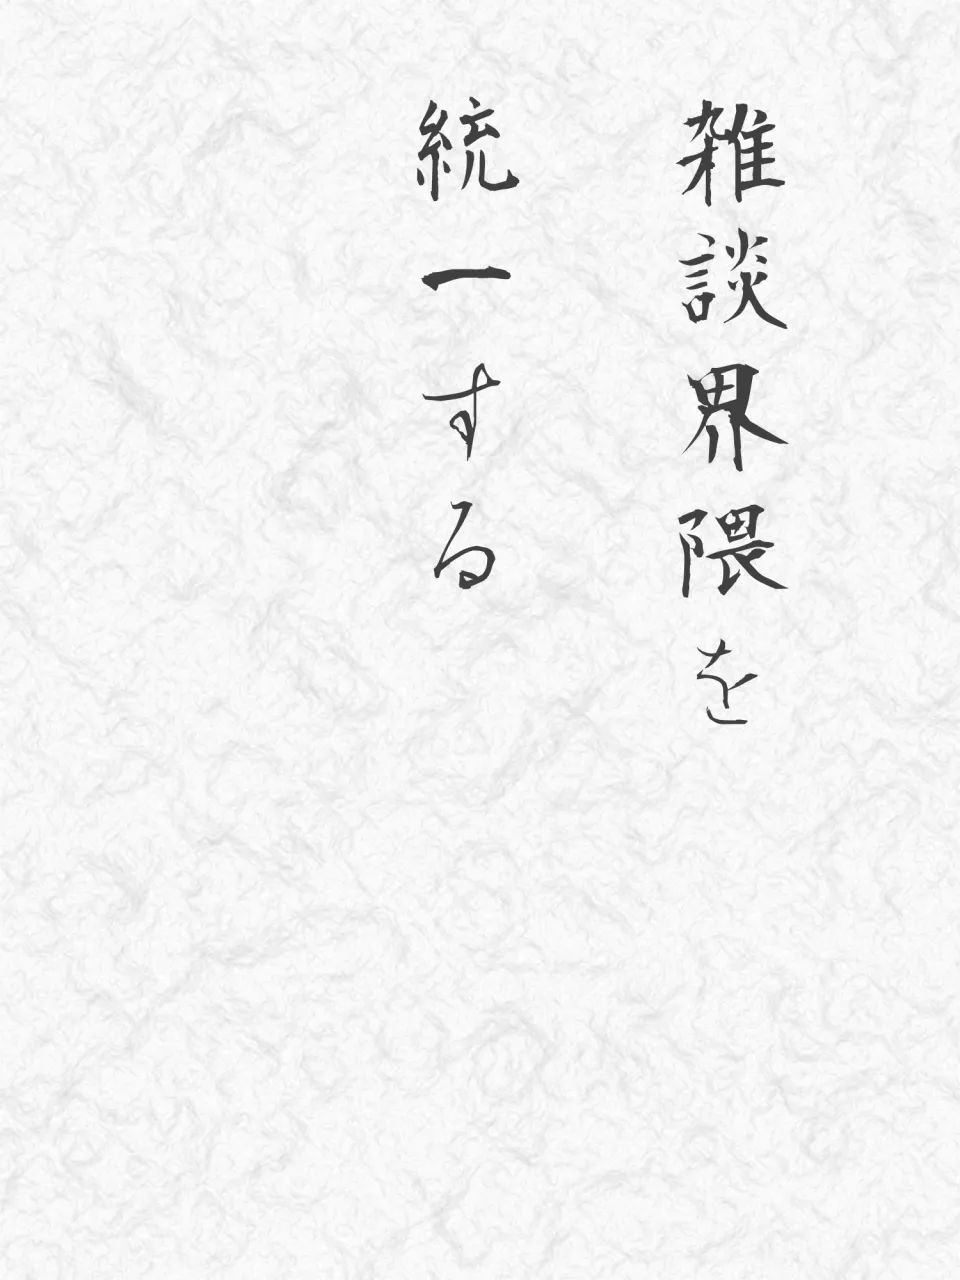 雑談界隈を
統一する